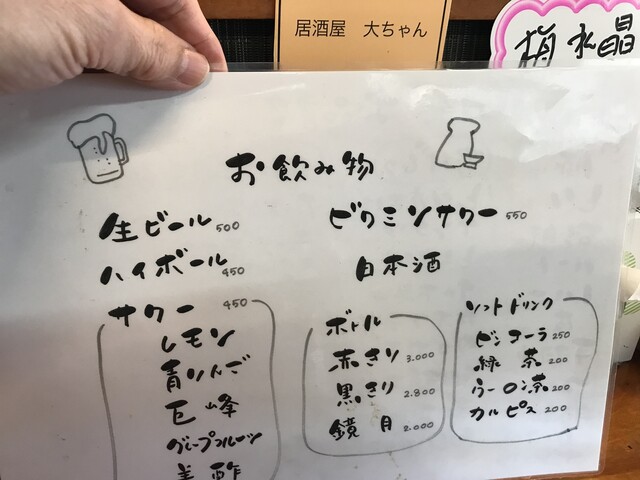 居酒屋 大ちゃん
梅水晶
お飲み物
生ビール 500
ハイボール 450
サワー 450
レモン
青りんご
巨峰
グレープフルーツ
美酢
ビタミンサワー 550
日本酒
ボトル
赤きり 3.000
黒きり 2.800
鏡月 2.000
ソフトドリンク
ビンコーラ 250
緑茶 200
ウーロン茶 200
カルピス 200